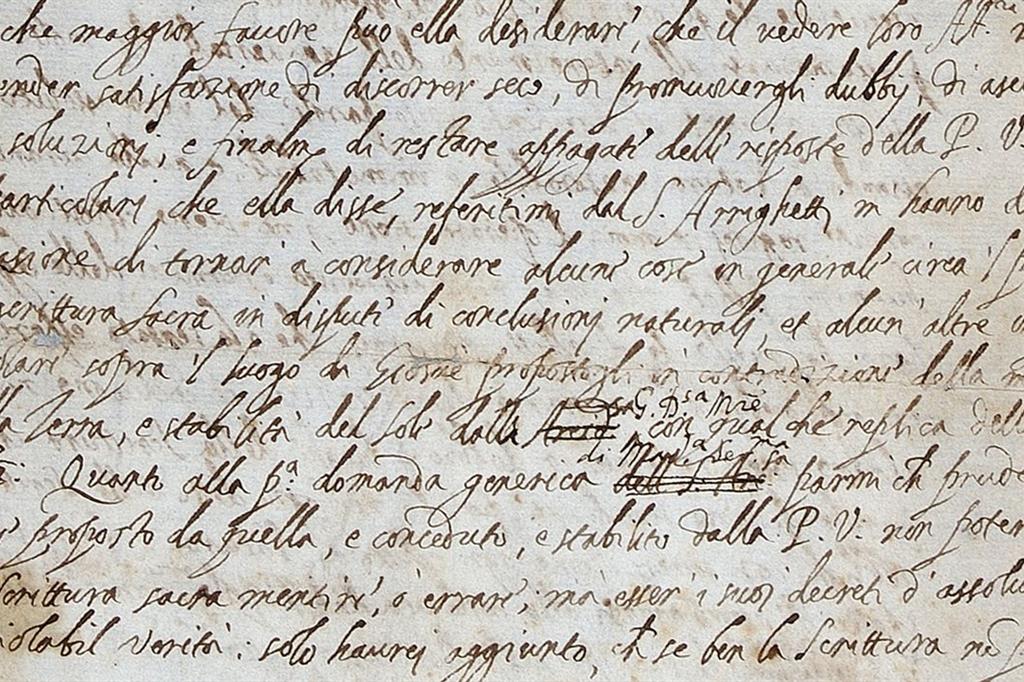 che maggior favore può ella desiderare, che il vedere loro Alt.
ender satisfazione di discorrer seco, di promuovergli dubbij, di asc
soluzionj, e finalm.e di restare appagate delle risposte della P. V.
articolarj che ella disse, referitimi dal S. Arrighettj m hanno d
sione di tornar à considerare alcune cose in generale circa 'l p
crittura sacra in dispute di conclusionj naturalj, et alcun' altre in
olare sopra 'l luogo di Giosuè propostogli in contradizione della m
la Terra, e stabilità del Sole dalla G. D.sa M.re con qualche replica dell
di Mad.a Ser.ma
Quanto alla p.a domanda generica parmi ch. prude
proposto da quella, e conceduto, e stabilito dalla P. V. non poter
Scrittura sacra mentire, ò errare, mà esser i suoi decreti d' assolu
iolabil verità: solo haurej aggiunto, ch. se ben la Scrittura no